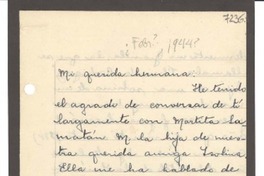 7236
Febº 1944?
Mi querida hermana: He tenido
el agrado de conversar de ti
largamente con Martita La
M. la hija de nues-
tra querida amiga Isolina.
Ella me ha hablado de